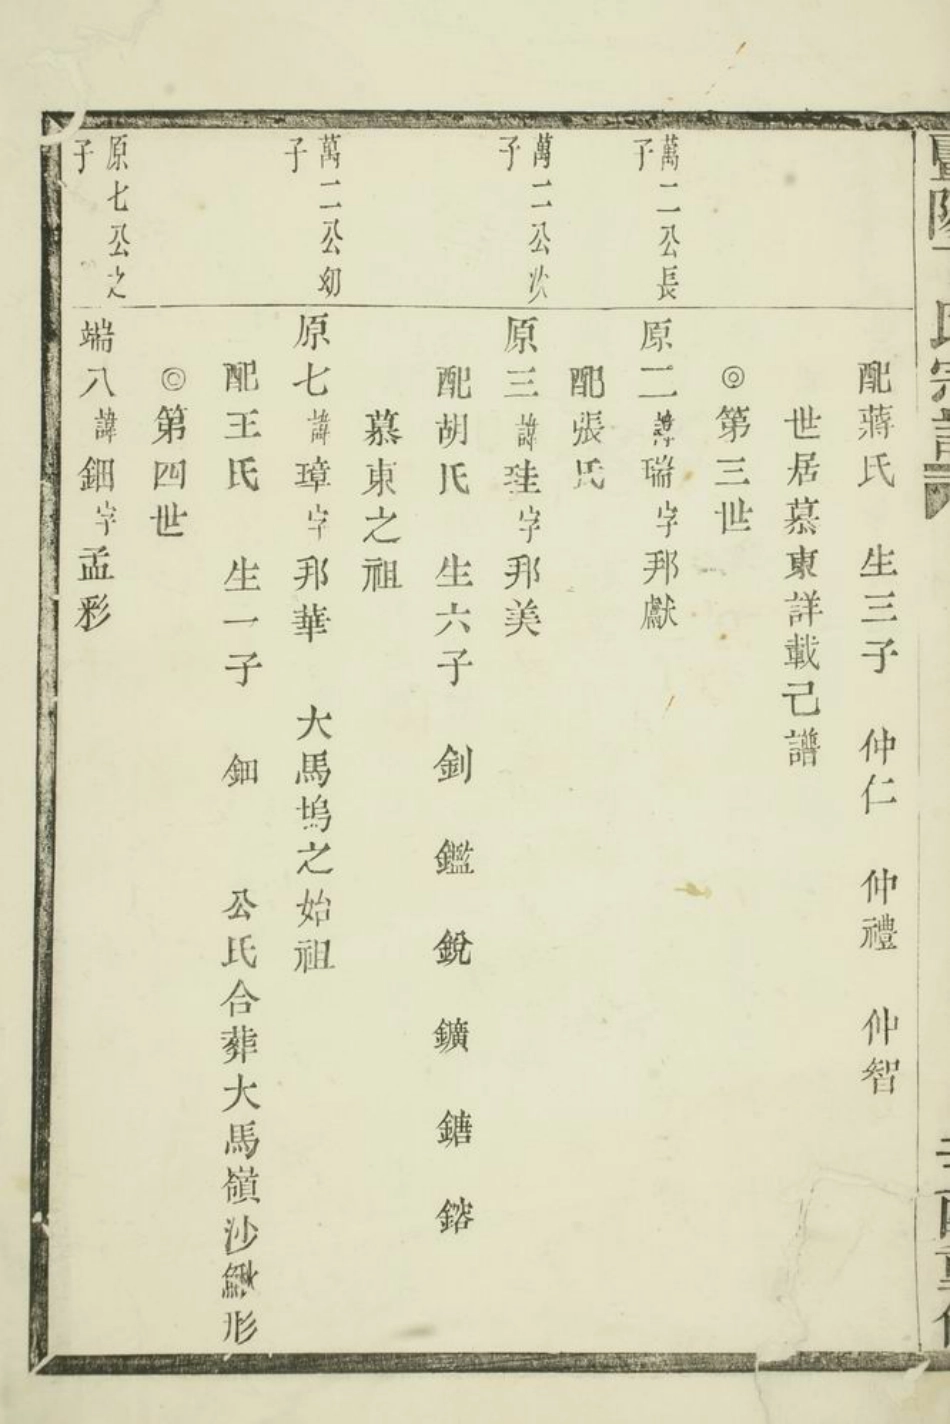 配蔣氏 生三子 仲仁 仲禮 仲智
世居慕東詳載己譜
◎第三世
萬二公長子
原二諱瑞字邦獻
配張氏
萬二公次子
原三諱珪字邦美
配胡氏 生六子 釗 鑑 銳 鑛 鎕 鎔
慕東之祖
萬二公幼子
原七諱璋字邦華 大馬塢之始祖
配王氏 生一子 鈿 公氏合葬大馬嶺沙鰍形
◎第四世
原七公之子
端八諱鈿字孟彩